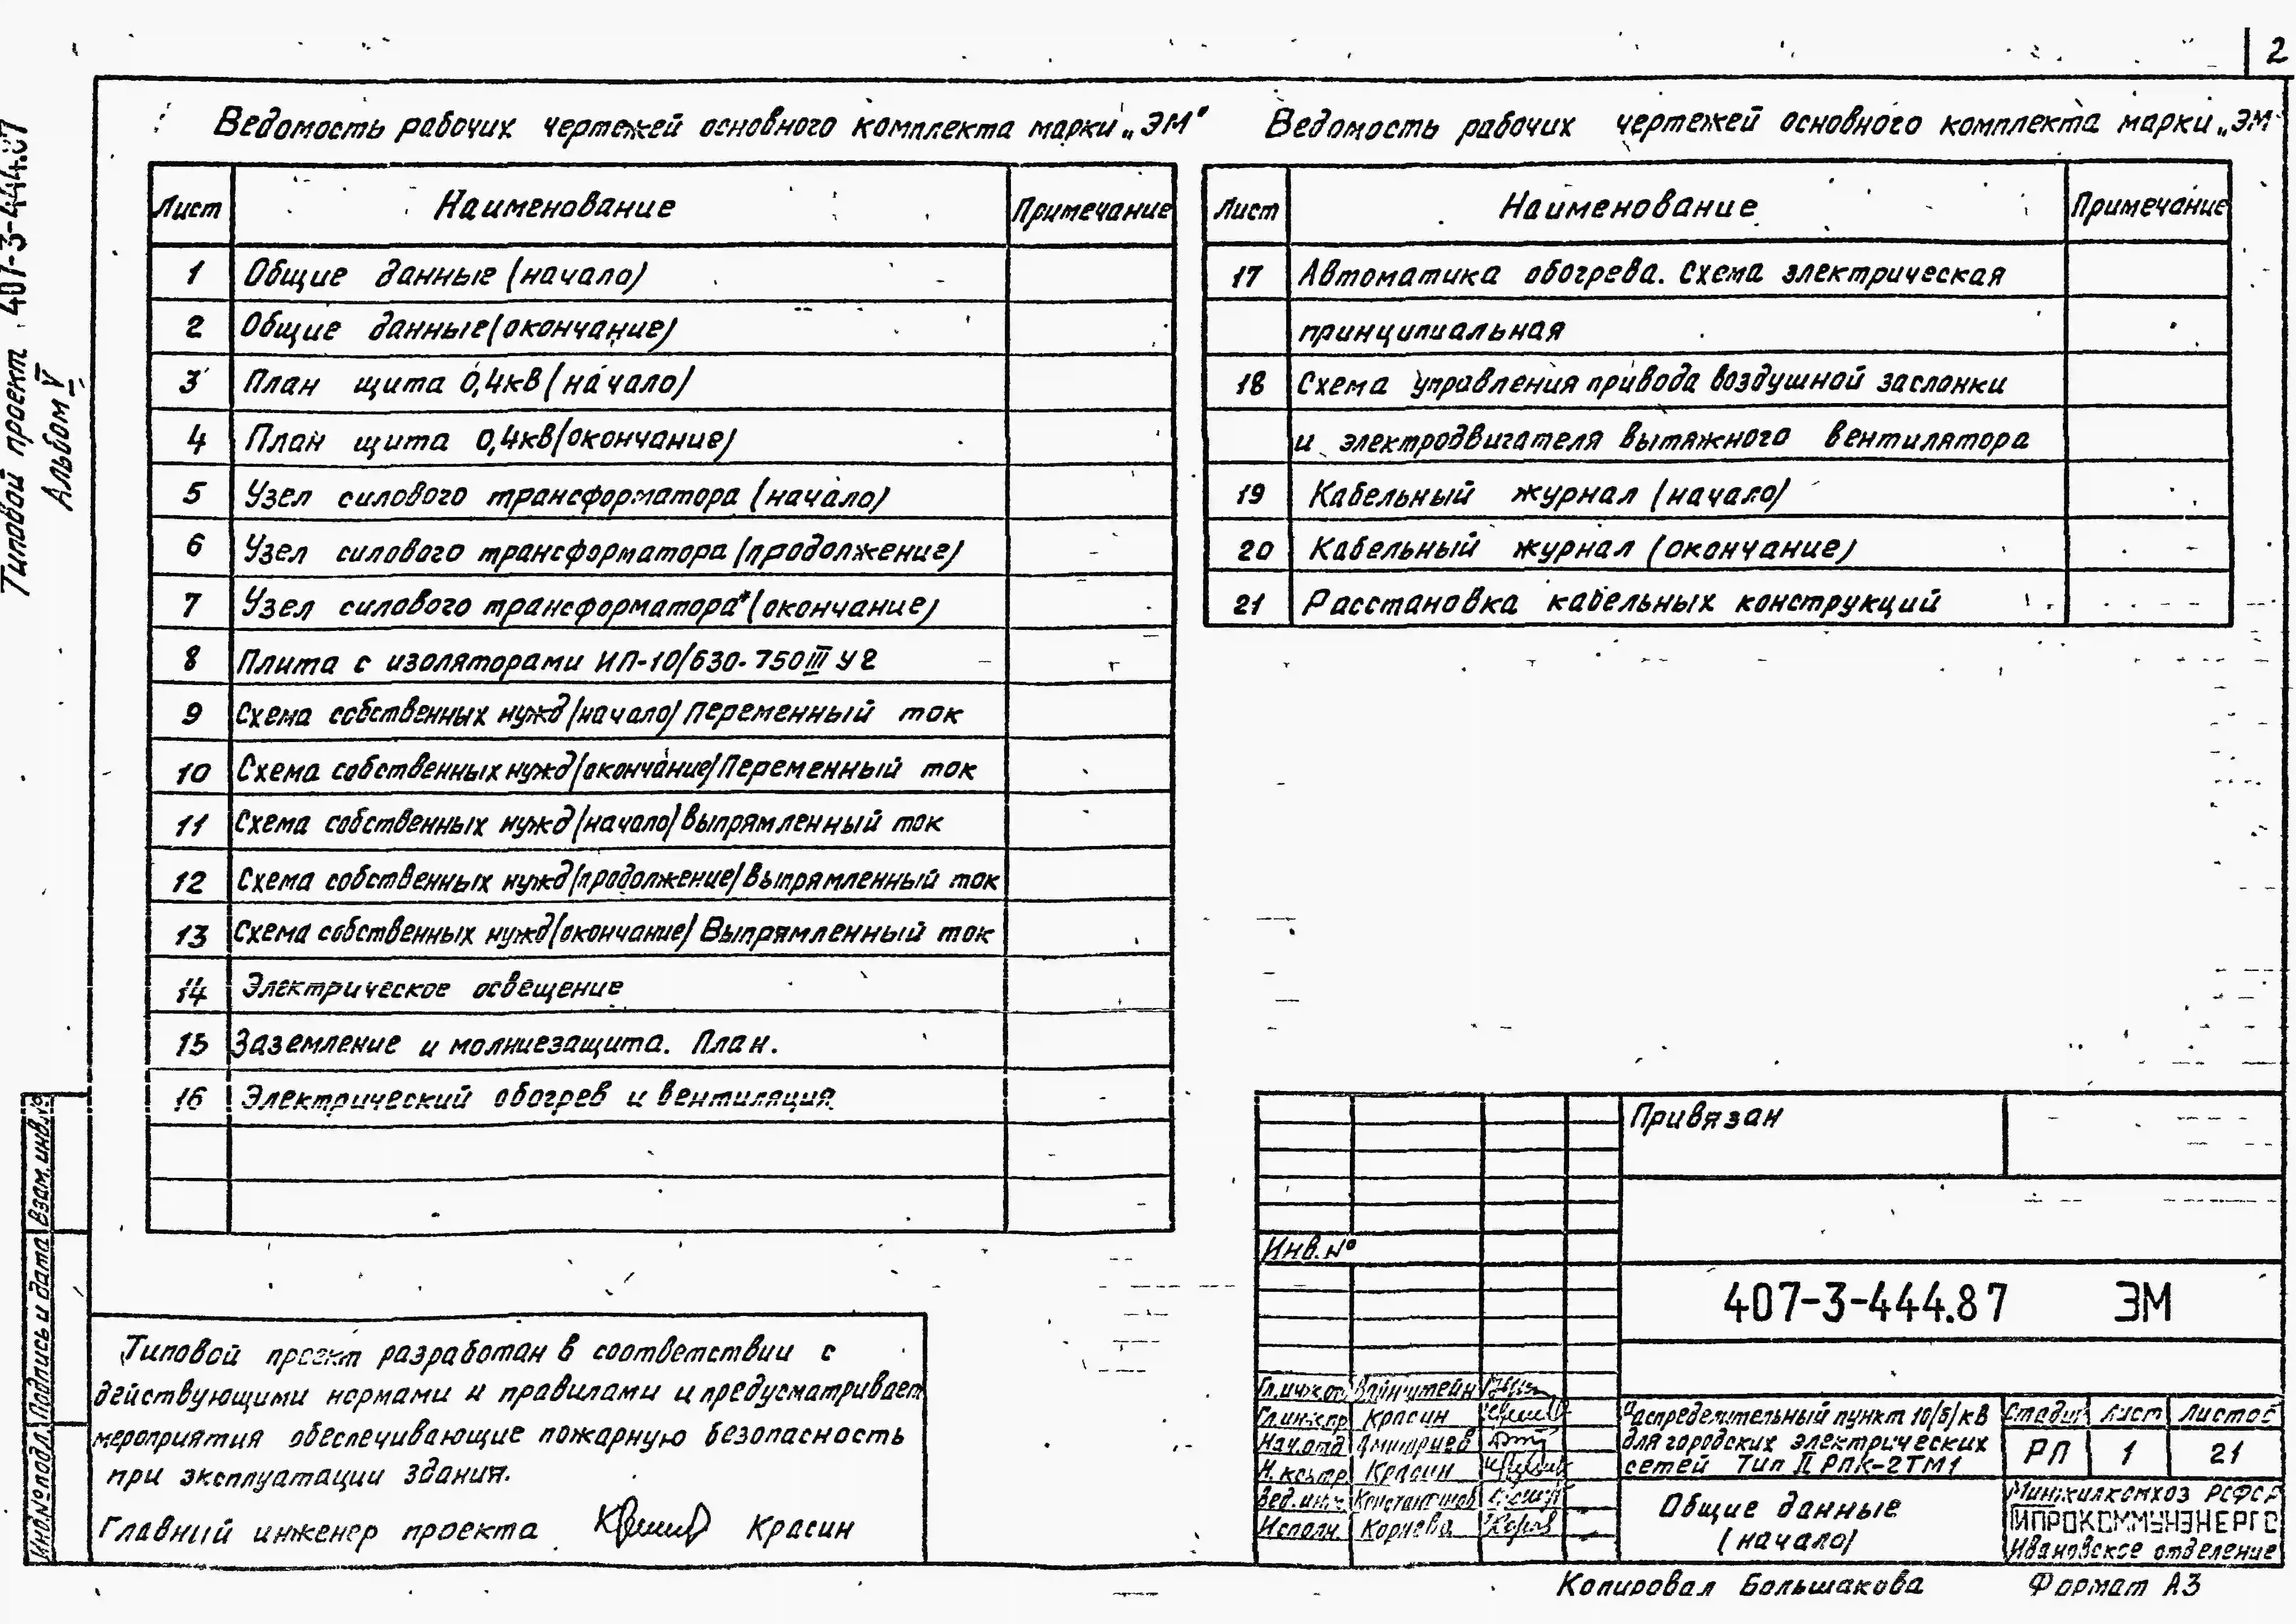 2
Типовой проект 407-3-444.87
Альбом V
Ведомость рабочих чертежей основного комплекта марки „ЭМ"
Лист Наименование Примечание
1 Общие данные (начало)
2 Общие данные (окончание)
3 План щита 0,4кВ (начало)
4 План щита 0,4кВ (окончание)
5 Узел силового трансформатора (начало)
6 Узел силового трансформатора (продолжение)
7 Узел силового трансформатора (окончание)
8 Плита с изоляторами ИП-10/630-750 III У2
9 Схема собственных нужд (начало) Переменный ток
10 Схема собственных нужд (окончание) Переменный ток
11 Схема собственных нужд (начало) Выпрямленный ток
12 Схема собственных нужд (продолжение) Выпрямленный ток
13 Схема собственных нужд (окончание) Выпрямленный ток
14 Электрическое освещение
15 Заземление и молниезащита. План.
16 Электрический обогрев и вентиляция
Ведомость рабочих чертежей основного комплекта марки „ЭМ
Лист Наименование Примечание
17 Автоматика обогрева. Схема электрическая
принципиальная
18 Схема управления привода воздушной заслонки
и электродвигателя вытяжного вентилятора
19 Кабельный журнал (начало)
20 Кабельный журнал (окончание)
21 Расстановка кабельных конструкций
Типовой проект разработан в соответствии с
действующими нормами и правилами и предусматривает
мероприятия обеспечивающие пожарную безопасность
при эксплуатации здания.
Главный инженер проекта Красин
Инв.№ подл. Подпись и дата Взам. инв.№
Привязан
Инв.№
407-3-444.87 ЭМ
Гл.инж.от. Вайнштейн
Гл.инж.пр. Красин
Нач.отд. Дмитриев
Н.контр. Красин
Вед.инж. Константинов
Исполн. Корнева
Распределительный пункт 10(6)кВ
для городских электрических
сетей Тип II РПК-2ТМ1
Стадия Лист Листов
РП 1 21
Общие данные
(начало)
Минжилкомхоз РСФСР
ГИПРОКОММУНЭНЕРГО
Ивановское отделение
Копировал Большакова Формат А3